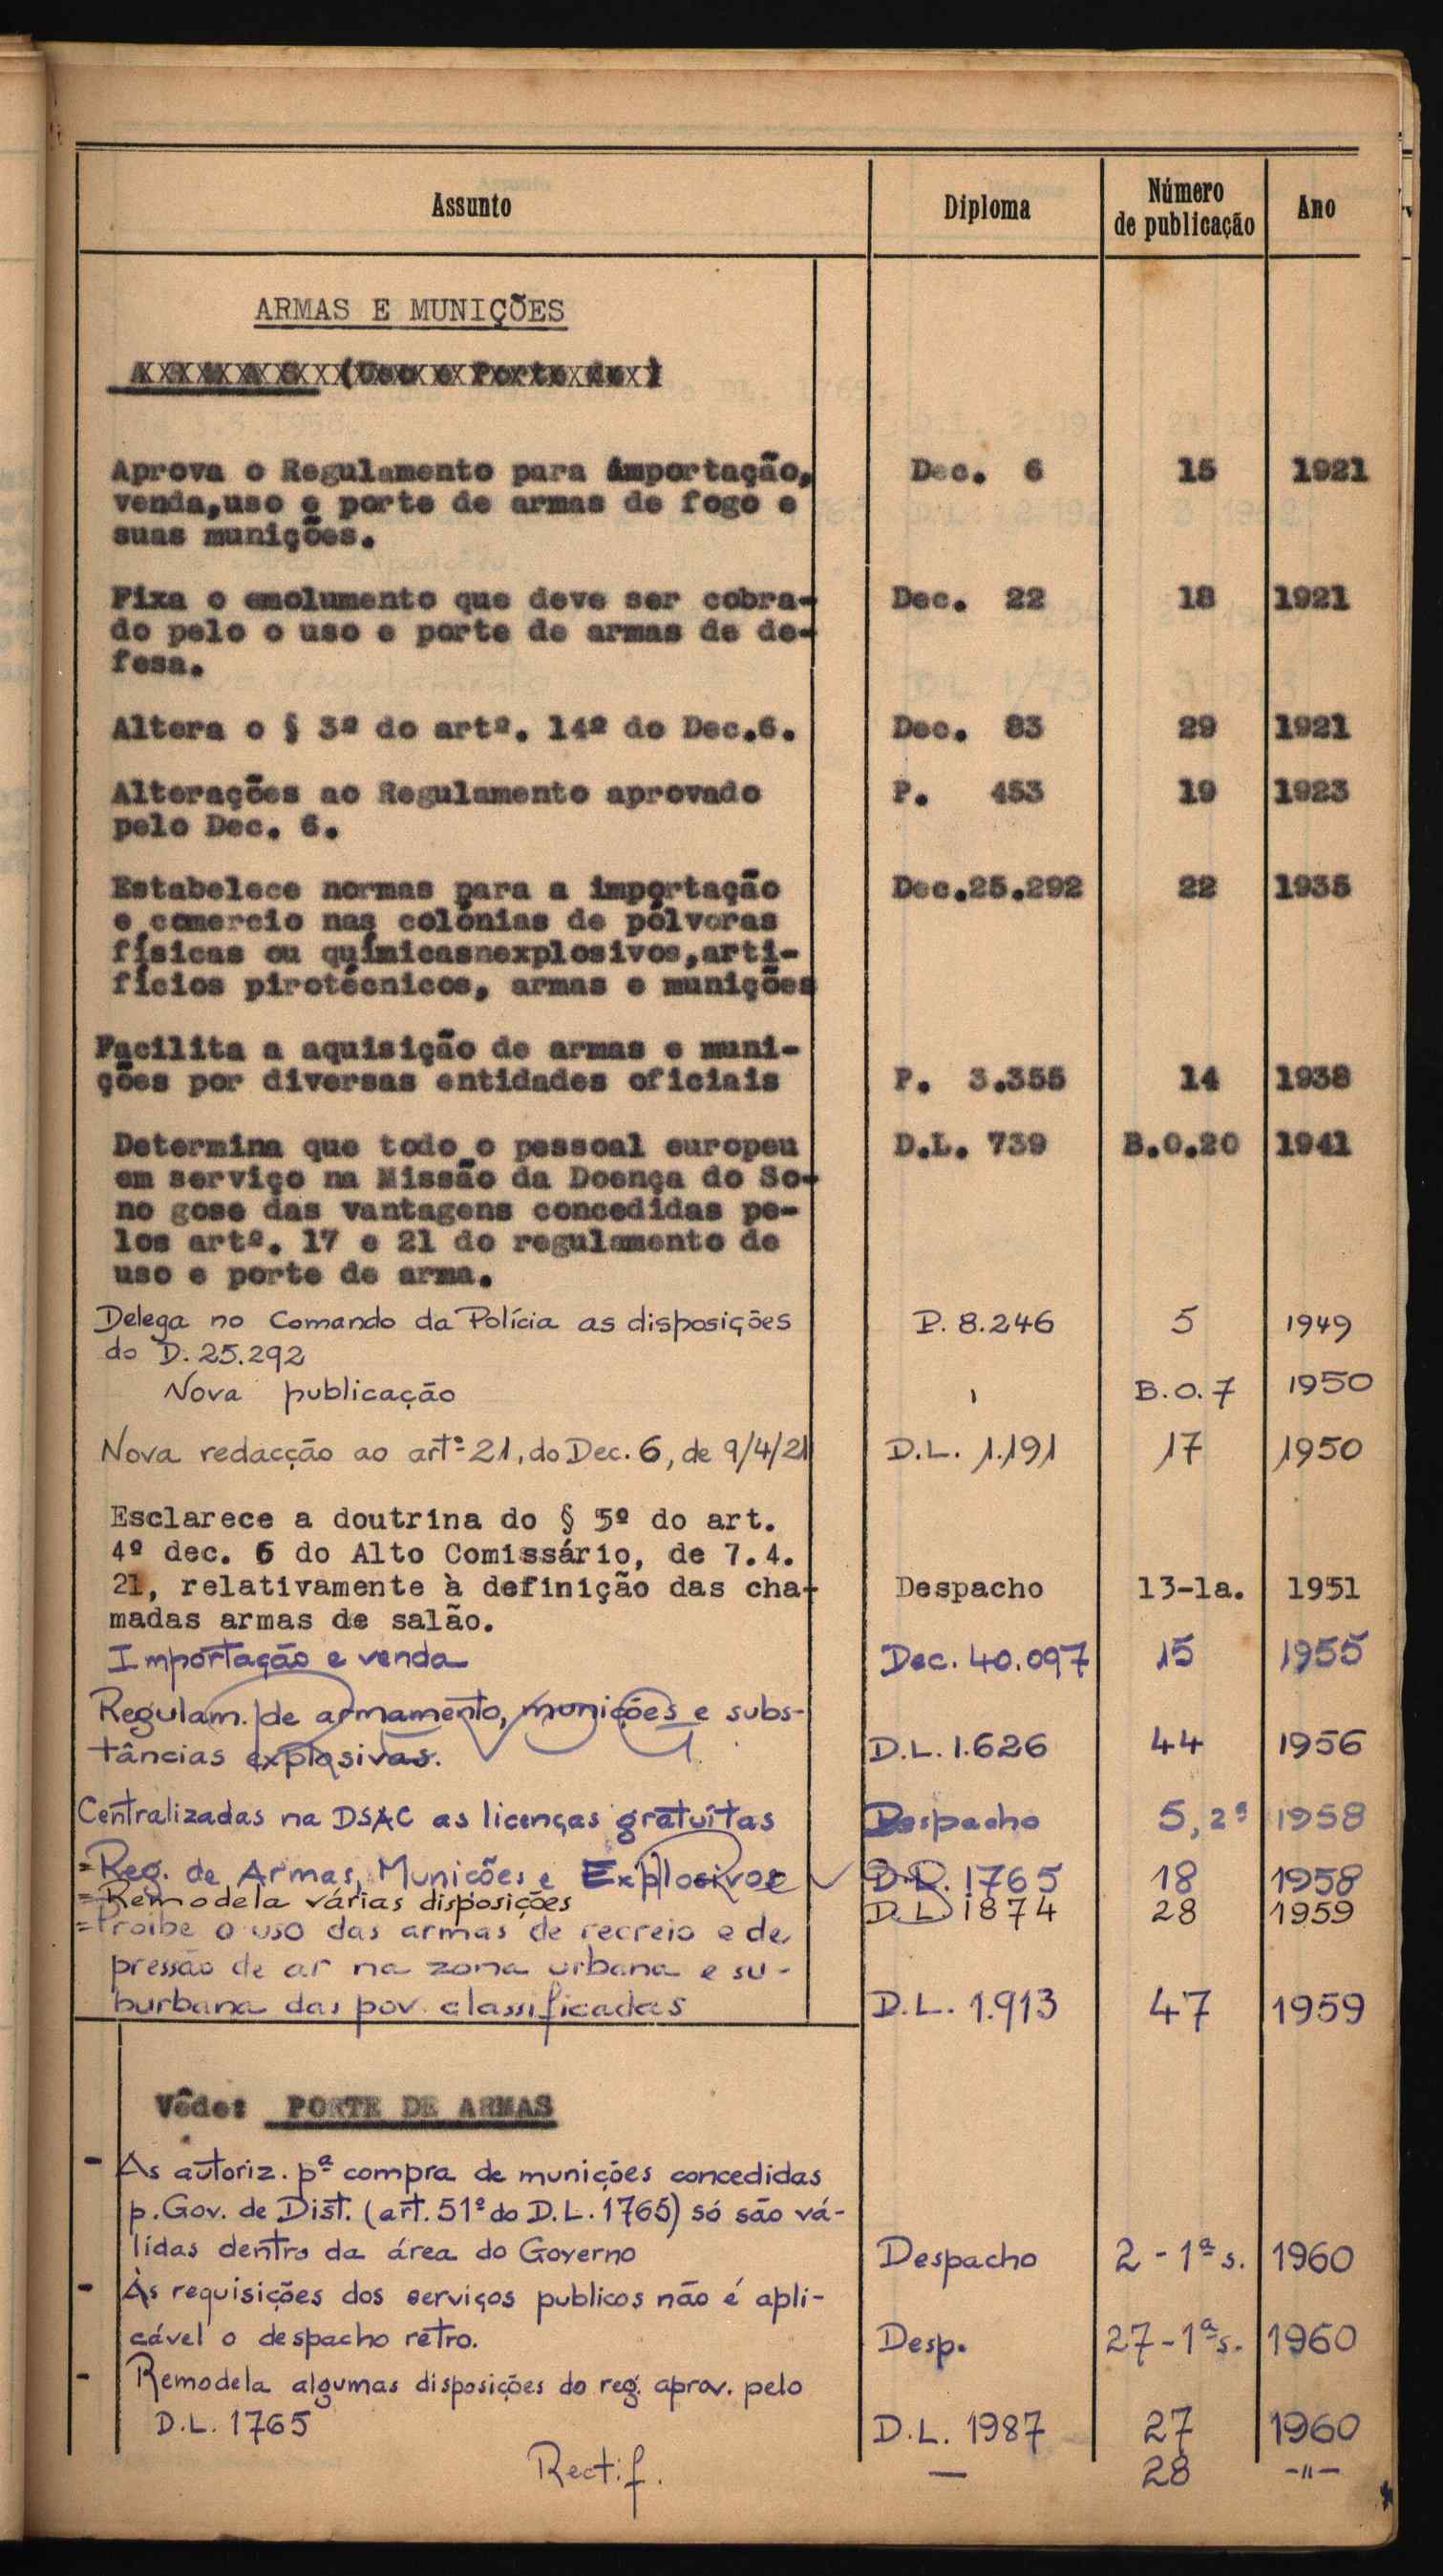 Assunto Diploma Número de publicação Ano
ARMAS E MUNIÇÕES
(Uso e Porte de)
Aprova o Regulamento para importação, Dec. 6 15 1921
venda,uso e porte de armas de fogo e
suas munições.
Fixa o emolumento que deve ser cobra- Dec. 22 18 1921
do pelo o uso e porte de armas de de-
fesa.
Altera o § 3º do artº. 14º do Dec.6. Dec. 83 29 1921
Alterações ao Regulamento aprovado P. 453 19 1923
pelo Dec. 6.
Estabelece normas para a importação Dec.25.292 22 1935
e comercio nas colónias de pólvoras
físicas ou químicasnexplosivos,arti-
fícios pirotécnicos, armas e munições
Facilita a aquisição de armas e muni-
ções por diversas entidades oficiais P. 3.355 14 1938
Determina que todo o pessoal europeu D.L. 739 B.O.20 1941
em serviço na Missão da Doença do So-
no gose das vantagens concedidas pe-
los artº. 17 e 21 do regulamento de
uso e porte de arma.
Delega no Comando da Polícia as disposições P. 8.246 5 1949
do D. 25.292
Nova publicação B.O.7 1950
Nova redacção ao artº 21, do Dec. 6, de 9/4/21 D.L. 1.191 17 1950
Esclarece a doutrina do § 5º do art.
4º dec. 6 do Alto Comissário, de 7.4.
21, relativamente à definição das cha- Despacho 13-1a. 1951
madas armas de salão.
Importação e venda Dec. 40.097 15 1955
Regulam. de armamento, munições e subs-
tâncias explosivas. D.L. 1.626 44 1956
Centralizadas na DSAC as licenças gratuítas Despacho 5, 2ª 1958
=Reg. de Armas, Munições e Explosivos D.L. 1765 18 1958
=Remodela várias disposições D.L 1874 28 1959
=Proibe o uso das armas de recreio e de
pressão de ar na zona urbana e su-
burbana das pov. classificadas D.L. 1.913 47 1959
Vêde: PORTE DE ARMAS
- As autoriz. pª compra de munições concedidas
p. Gov. de Dist. (art. 51º do D.L. 1765) só são vá-
lidas dentro da área do Governo Despacho 2 - 1ª s. 1960
- Às requisições dos serviços publicos não é apli-
cável o despacho retro. Desp. 27-1ª s. 1960
- Remodela algumas disposições do reg. aprov. pelo
D.L. 1765 D.L. 1987 27 1960
Rectif. — 28 -"-